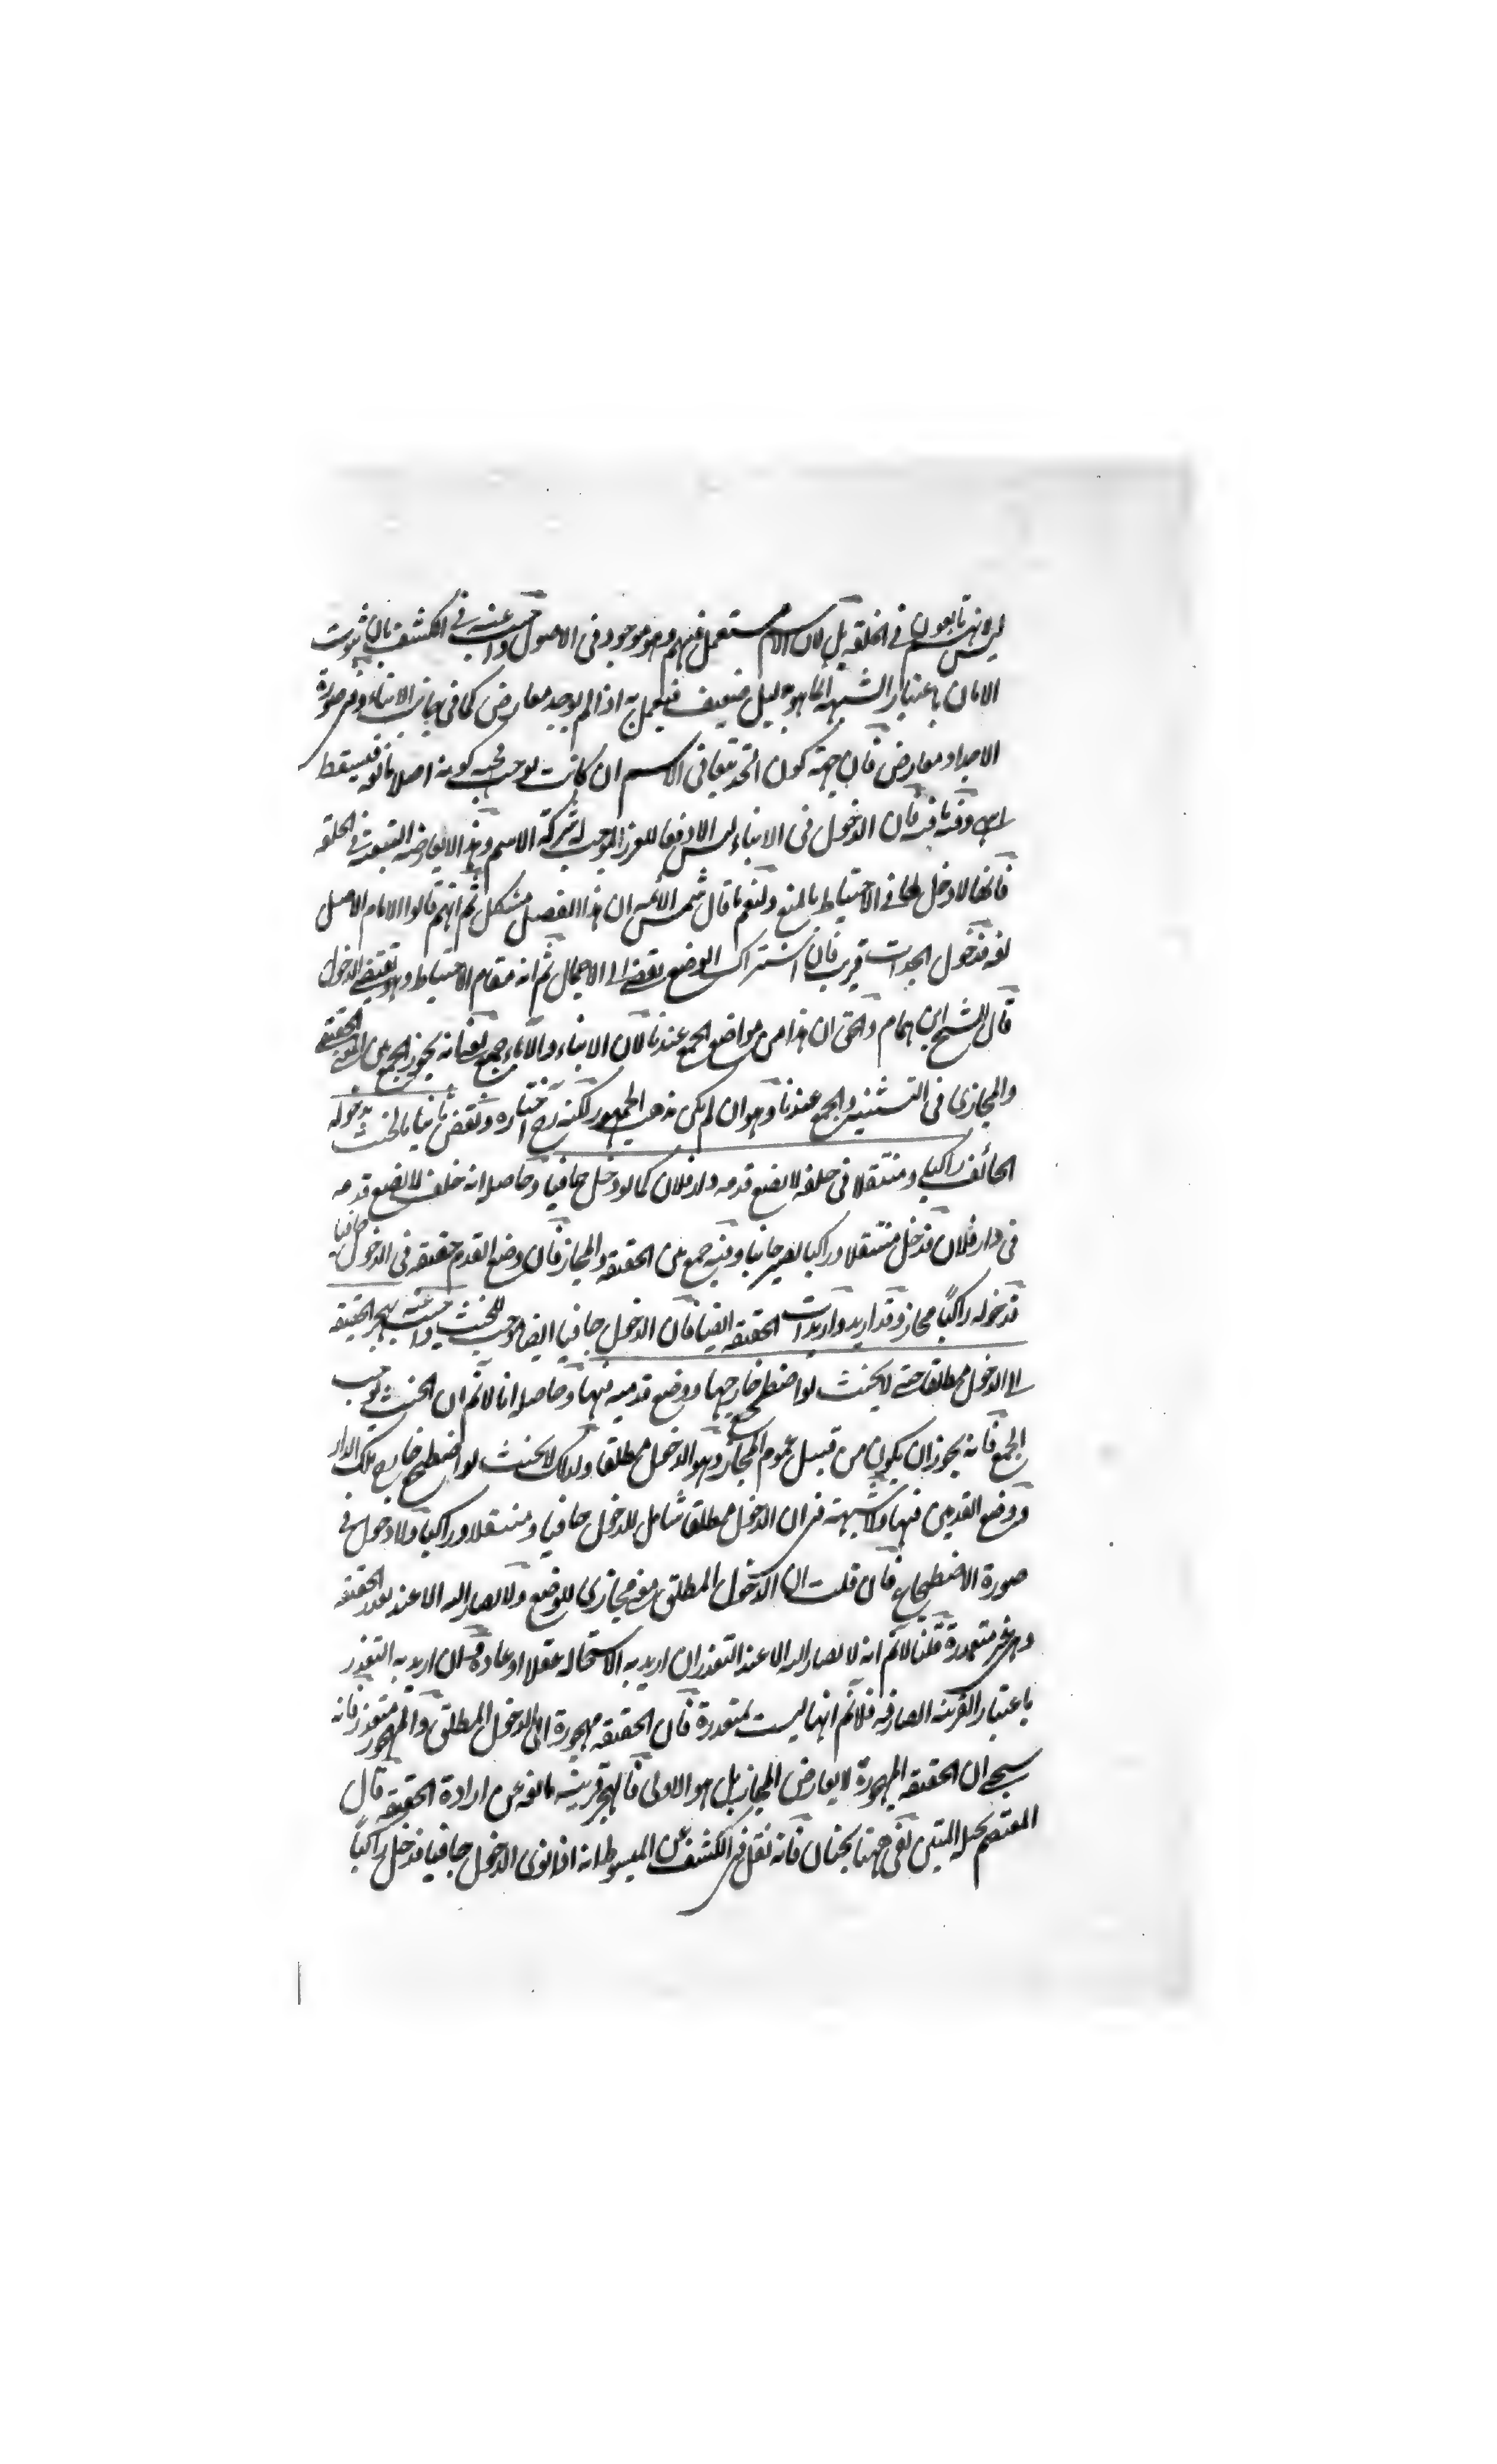 ليس لانهم تابعون في الخلقة بل لان الاسم مستعمل فيهم وهو موجود في الاصول واجيب عنه في الكشف بان ثبوت
الامان باعتبار الشبهة انما هو دليل ضعيف فيعمل به اذا لم يوجد معارض كما في جانب الابناء وفي صورة
الاجداد معارض فان جهة كون الجد تبعا في الاسم ان كانت توجب فجهة كونه اصلا مانعة فيسقط
وفيه ما فيه فان الدخول في الابناء ليس الا دفعا للغرر الموجب له شركة الاسم وهذا لا يعارضه التبعية في الخلقة
فانها لا دخل لها في الاحتياط بالمنع ولنعم ما قال شمس الائمة ان هذا الفصل مشكل ثم انهم قالوا الام الاصل
لغة فدخول الجدات قريب فان اشتراك الوضع يفضي الى الاجمال ثم انه مقام الاحتياط وهو يقتضي الدخول
قال الشيخ ابن همام والحق ان هذا من مواضع الجمع عندنا لان الابناء والآباء جمع فانه يجوز الجمع بين المعنى الحقيقي
والمجازي في التثنية والجمع عندنا وهو ان لم يكن مذهب الجمهور لكنه رح اختاره ونقض ثانيا بالحنث بدخوله
الحالف راكبا ومنتقلا في حلفه لا يضع قدمه دار فلان كما لو دخل حافيا وحاصله انه حلف لا يضع قدمه
في دار فلان فدخل منتعلا وراكبا يصير حانثا وفيه جمع بين الحقيقة والمجاز فان وضع القدم حقيقة في الدخول حافيا
فدخوله راكبا مجاز وقد اريد واريدت الحقيقة ايضا فان الدخول حافيا ايضا موجب للحنث واجيب عنه بهجر الحقيقة
الى الدخول مطلقا حتى لا يحنث لو اضطجع خارجها ووضع قدميه فيها وحاصله انا لا نم ان الحنث يوجب
الجمع فانه يجوز ان يكون من قبيل عموم المجاز وهو الدخول مطلقا ولذلك لا يحنث لو اضطجع خارج تلك الدار
ووضع القدمين فيها ولا شبهة في ان الدخول مطلقا شامل للدخول حافيا ومنتعلا وراكبا ولا دخول في
صورة الاضطجاع فان قلت ان الدخول المطلق معنى مجازي للوضع ولا يصار اليه الا عند تعذر الحقيقة
وهي غير متعذرة قلنا لا نم انه لا يصار اليه الا عند التعذر ان اريد به الاستحالة عقلا او عادة وان اريد به التعذر
باعتبار القرينة الصارفة فلا نم انها ليست بمتعذرة فان الحقيقة مهجورة الى الدخول المطلق والمهجور متعذر فانه
سيجئ ان الحقيقة المهجورة لا يعارض المجاز بل هو الاولى فالهجر قرينة مانعة عن ارادة الحقيقة قال
المعتصم بحبل المتين بقي ههنا بحثان فانه نقل في الكشف عن المبسوط انه اذا نوى الدخول حافيا فدخل راكبا